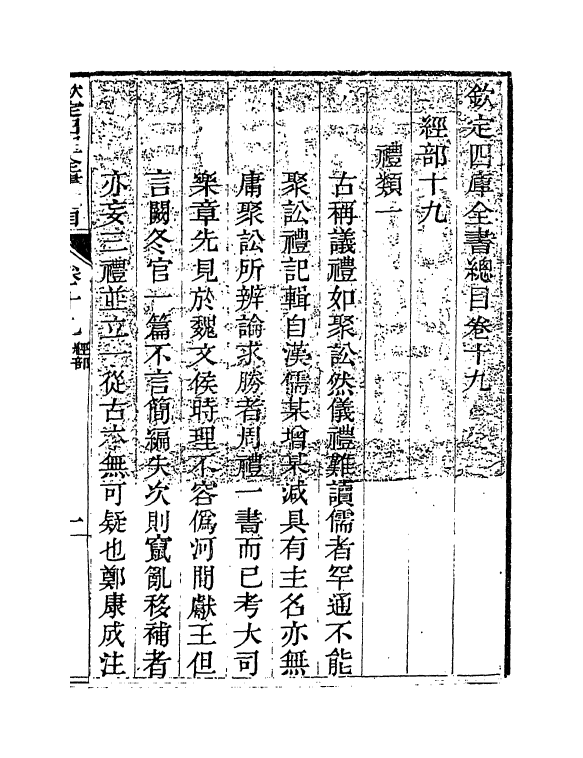 欽定四庫全書總目卷十九
經部十九
禮類一
古稱議禮如聚訟然儀禮難讀儒者罕通不能
聚訟禮記輯自漢儒某增某減具有主名亦無
庸聚訟所辨論求勝者周禮一書而已考大司
樂章先見於魏文侯時理不容僞河間獻王但
言闕冬官一篇不言簡編失次則竄亂移補者
亦妄三禮並立一從古本無可疑也鄭康成注
卷十九
經部
一